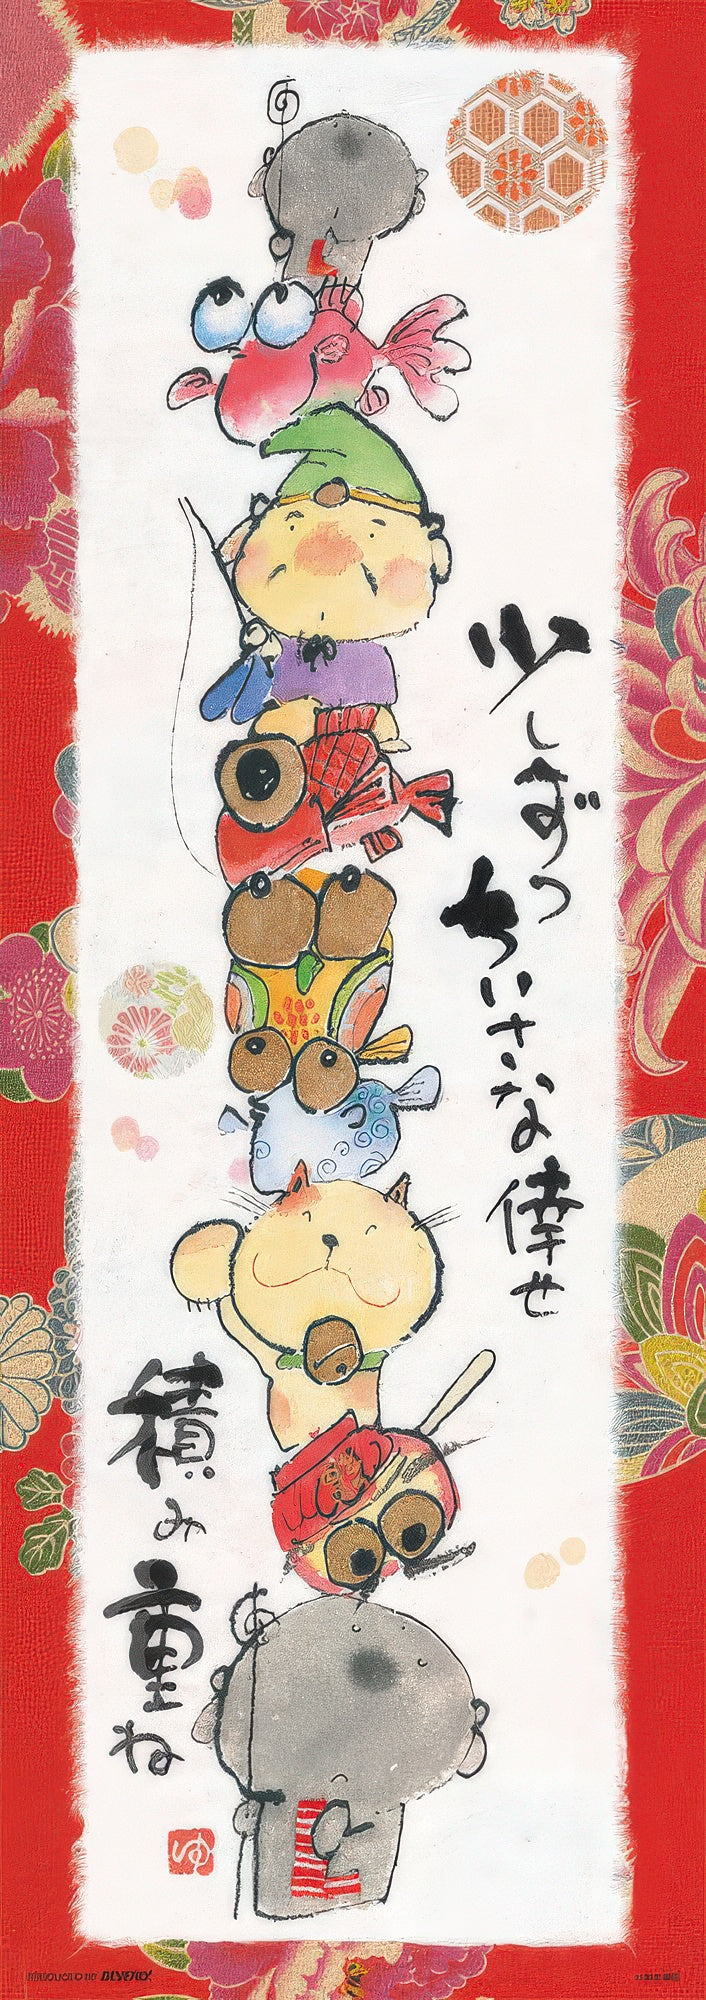 少しずつ
ちいさな倖せ
積み重ね
ゆ